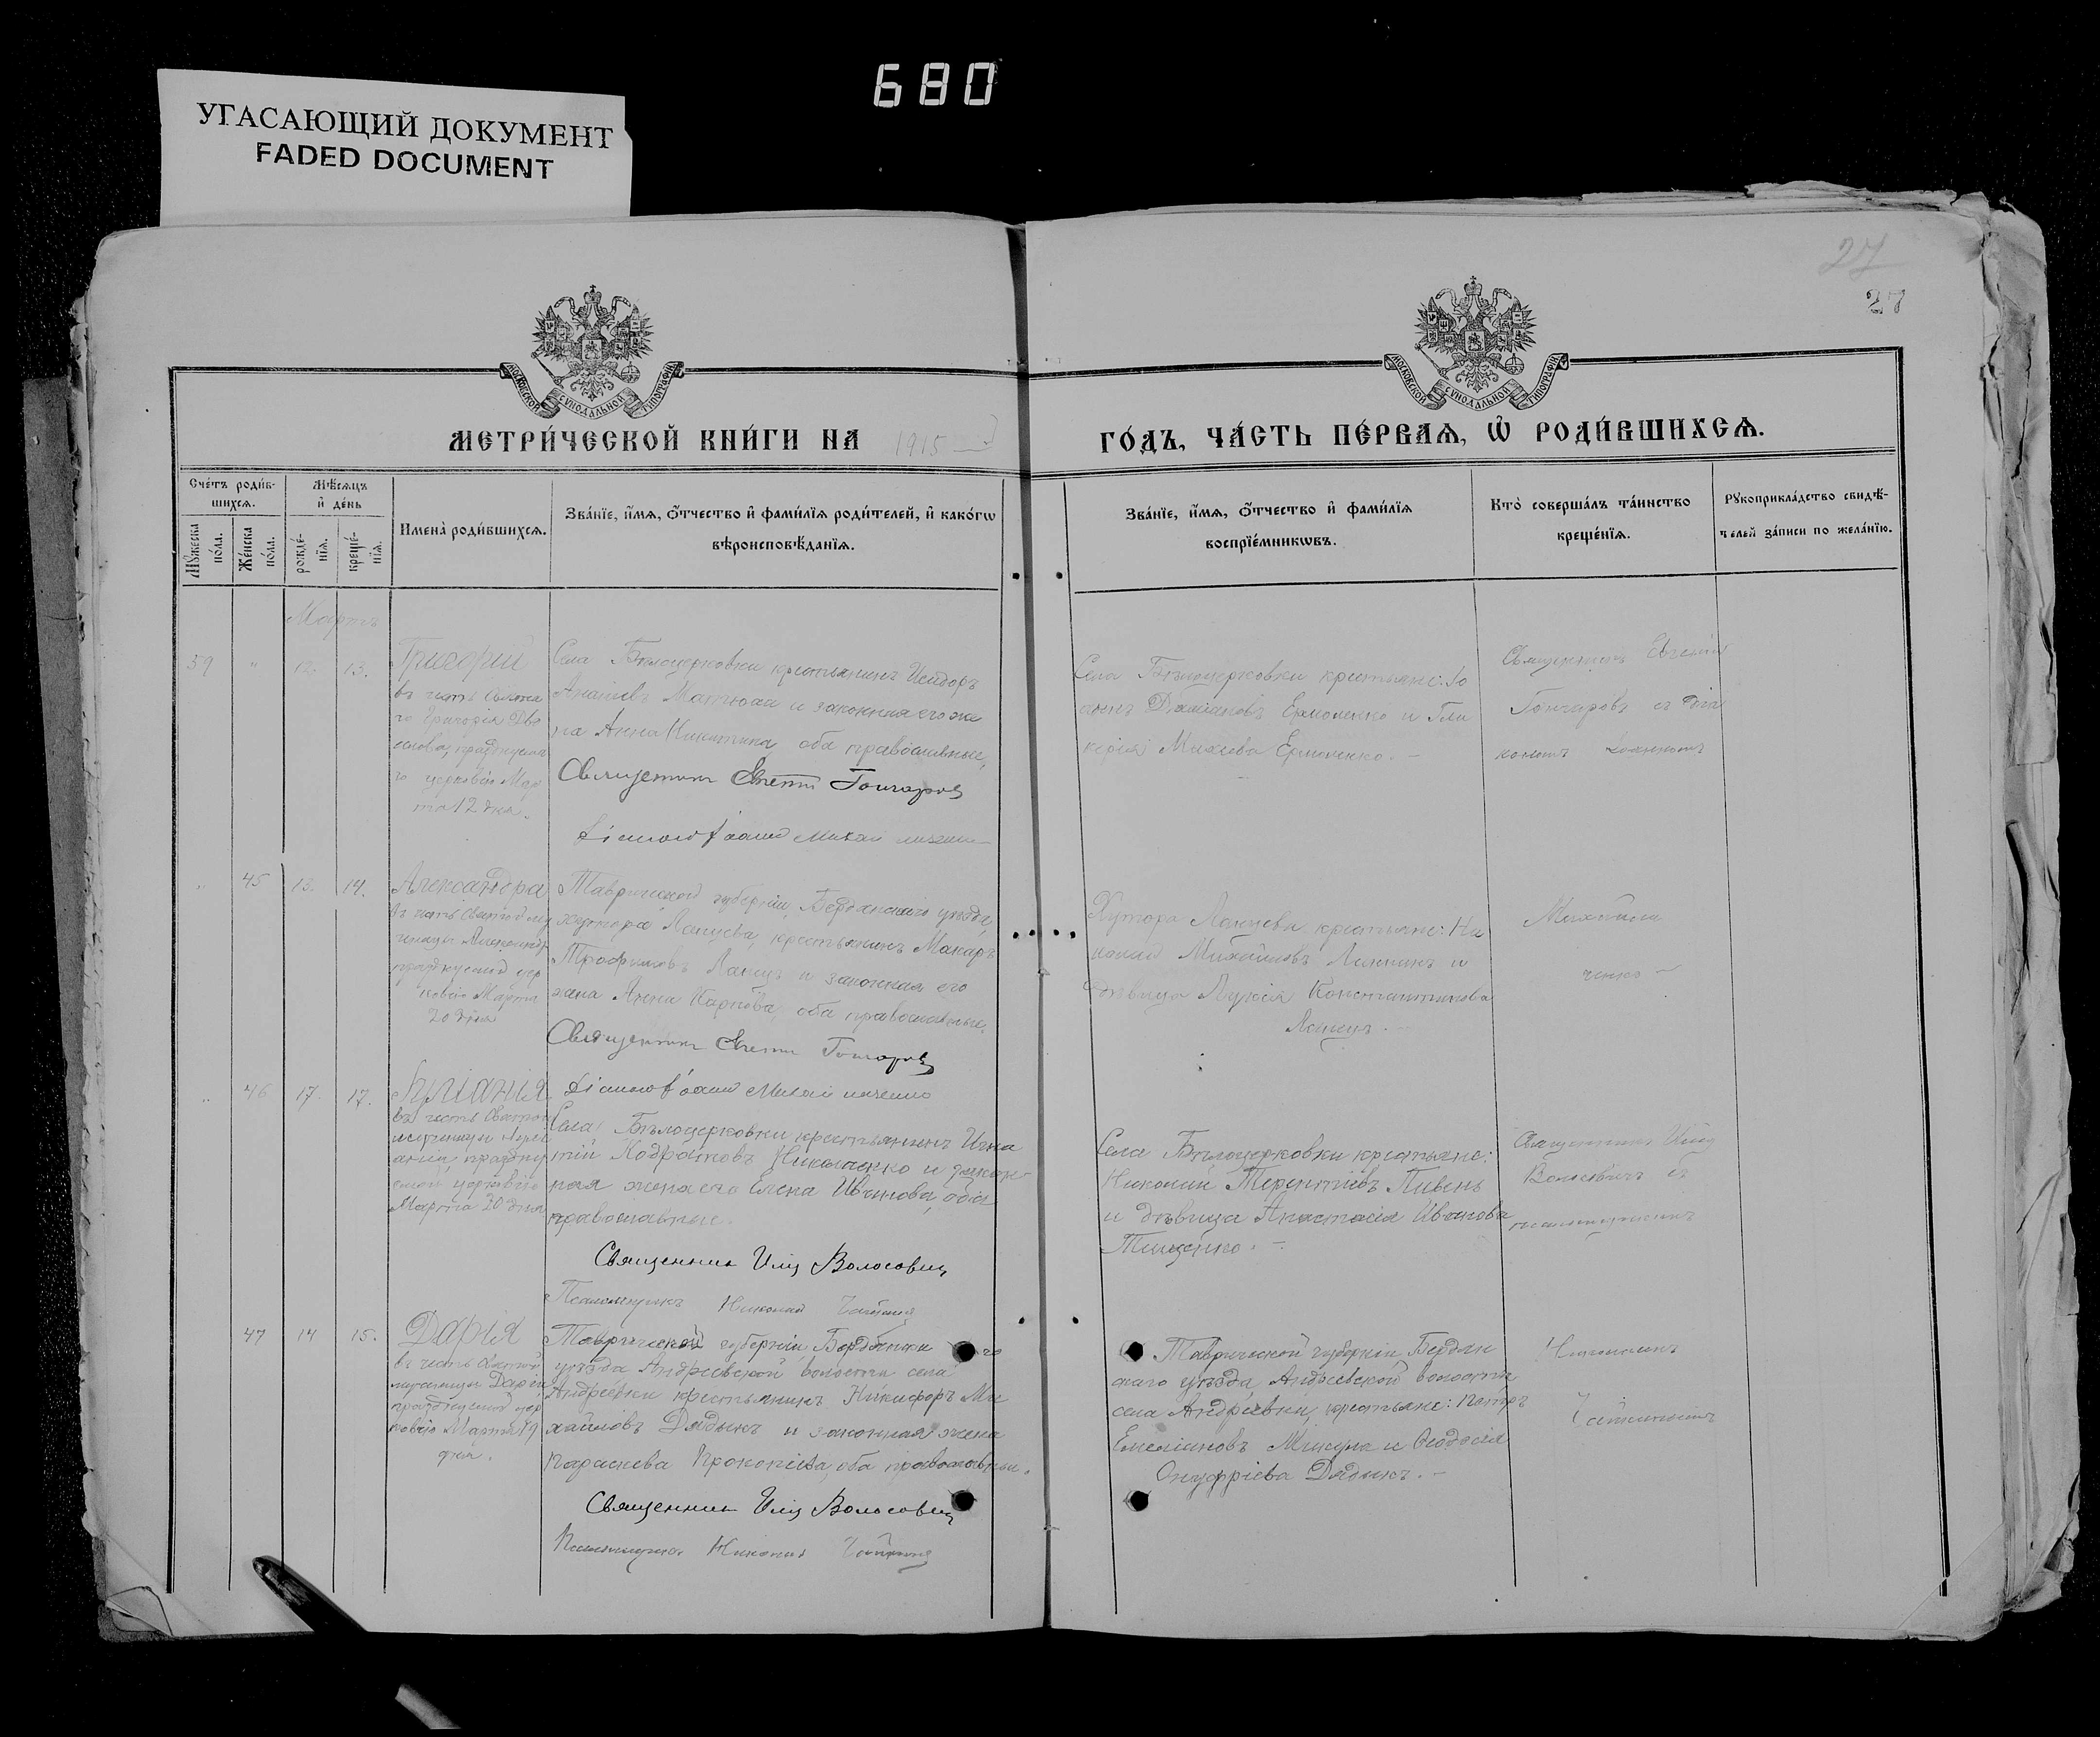 680
УГАСАЮЩИЙ ДОКУМЕНТ
FADED DOCUMENT
27
27
МОСКОВСКОЙ СУНОДАЛЬНОЙ ТИПОГРАФІИ
МОСКОВСКОЙ СУНОДАЛЬНОЙ ТИПОГРАФІИ
МЕТРИ́ЧЕСКОЙ КНИ́ГИ НА 1915
ГО́ДЪ, ЧА́СТЬ ПЕ́РВАѦ, Ѡ҆ РОДИ́ВШИХСѦ.
Сче́тъ роди́в-
шихсѧ.
Мꙋ́жеска
по́ла.
Же́нска
по́ла.
Мѣ́сѧцъ
и҆ де́нь
рожде́-
нїѧ.
креще́-
нїѧ.
Имена̀ роди́вшихсѧ.
Зва́нїе, и҆́мѧ, ѻ҆́тчество и҆ фами́лїѧ роди́телей, и҆ како́гѡ
вѣроисповѣ́данїѧ.
Зва́нїе, и҆́мѧ, ѻ҆́тчество и҆ фами́лїѧ
воспрїе́мникѡвъ.
Кто̀ соверша́лъ та́инство
креще́нїѧ.
Рꙋкоприкла́дство свидѣ́-
телей за́писи по жела́нїю.
Мартъ
59 " 12. 13.
Григорій
въ честь
го Григорія Дво
еслова, празднуема
го церковію Мар
та 12 дня.
Села Бѣлоцерковки крестьянинъ Исидоръ
Ананіевъ и законная его же
на Анна Никитина, оба православные,
Священникъ Евгеній Гончаровъ
Села Бѣлоцерковки крестьяне: Іо
аннъ Даміановъ Ермоленко и Гли
керія Ермоленко. —
Священникъ Евгеній
Гончаровъ съ діа
кономъ Іоанномъ
" 45 13. 14.
Александра
въ честь Святой му
ченицы Александры
празднуемой цер
ковію Марта
20 дня
Таврической губерніи, Бердянскаго уѣзда
хутора крестьянинъ Макаръ
Трофимовъ и законная его
жена Анна Карпова, оба православные.
Священникъ Евгеній Гончаровъ
Хутора крестьяне:
Михайловъ и
дѣвица Лукія Константинова
Михайли
ченко —
" 46 17. 17.
Іуліанія
въ честь Святой
мученицы Іулі
аніи, праздну
емой церковію
Марта 20 дня
Села Бѣлоцерковки крестьянинъ Игна
тій Кодратовъ Николаенко и закон-
ная жена его Елена Иванова, оба
православные.
Священникъ Илія Волосовичъ
Псаломщикъ Николай
Села Бѣлоцерковки крестьяне:
Николай Терентіевъ Пивень
и дѣвица Анастасія Иванова
Тищенко. —
Священникъ Илія
Волосовичъ съ
псаломщикомъ
47 14 15.
Дарія
въ честь Святой
мученицы Даріи
празднуемой цер
ковію Марта 19
дня.
Таврической губерніи, Бердянска го
уѣзда Андреевской волости села
Андреевки крестьянинъ Никифоръ Ми
хайловъ Дядыкъ и законная жена
Параскева Прокопіева, оба православные.
Священникъ Илія Волосовичъ
Псаломщикъ Николай
Таврической губерніи Бердян
скаго уѣзда Андреевской волости
села Андреевки, крестьяне: Петръ
Емеліановъ Микула и Ѳеодосія
Онуфріева Дядыкъ. —
Николаемъ